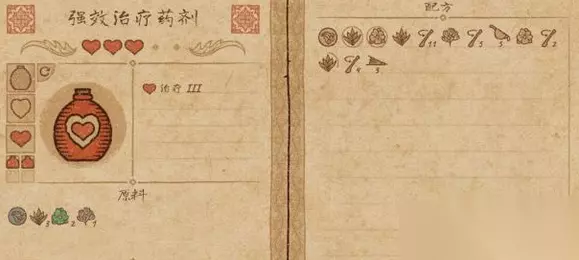 强效治疗药剂
治疗 III
原料
3 2 1
配方
11 3 3 2
4 3